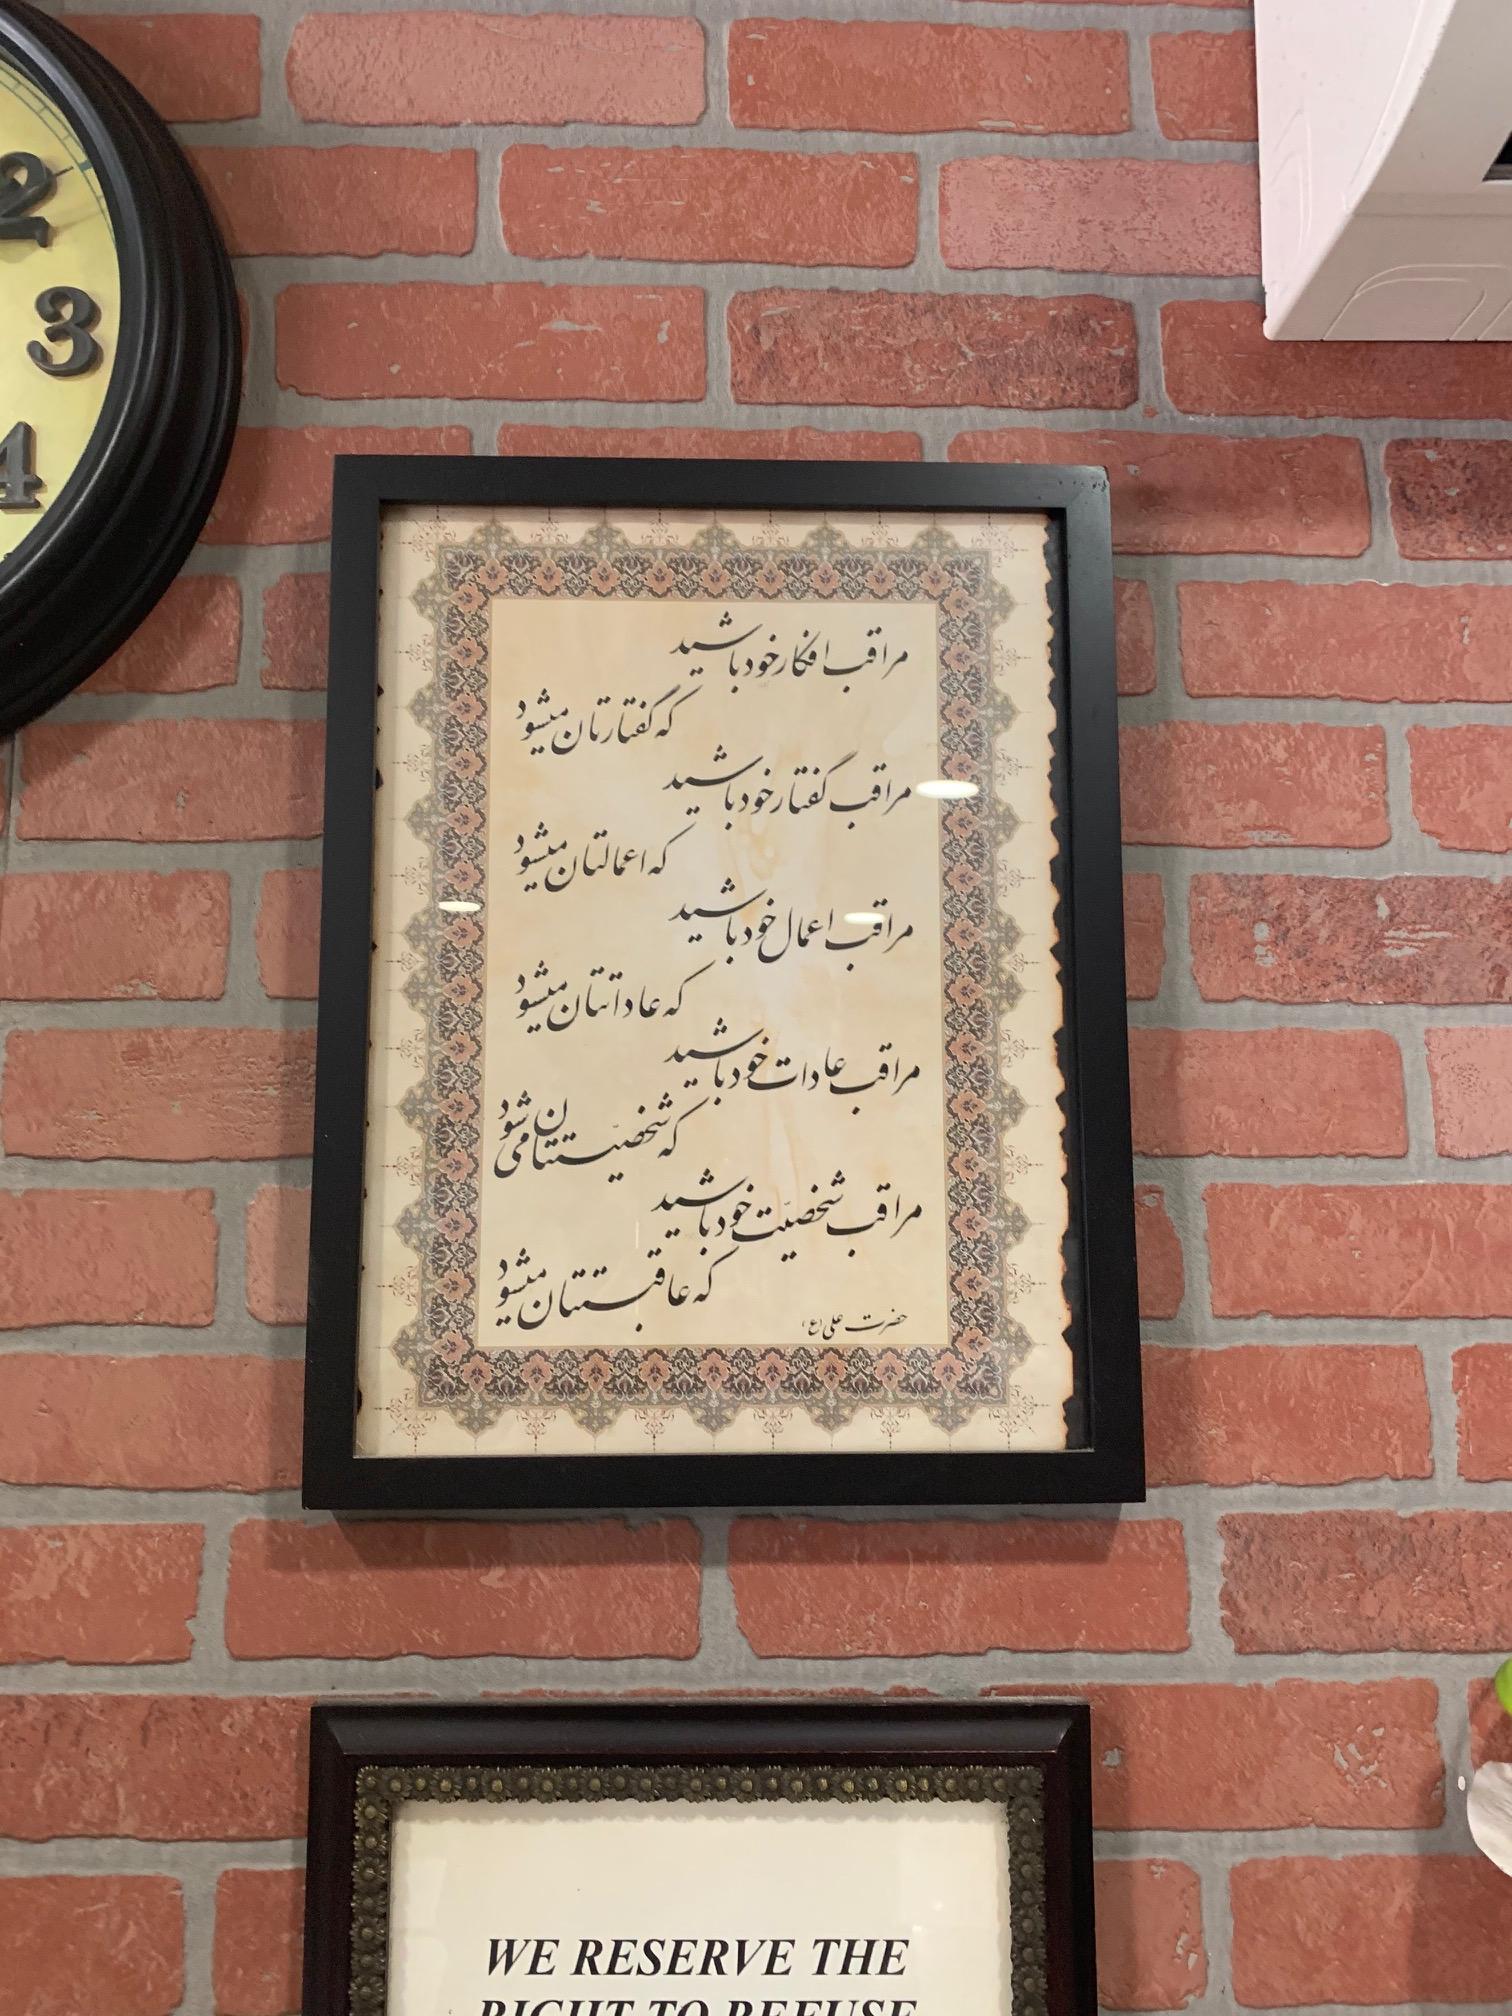 2
3
4
مراقب افکار خود باشید
که گفتارتان میشود
مراقب گفتار خود باشید
که اعمالتان میشود
مراقب اعمال خود باشید
که عاداتتان میشود
مراقب عادات خود باشید
که شخصیّتتان می شود
مراقب شخصیّت خود باشید
که عاقبتتان میشود
حضرت علی (ع)
WE RESERVE THE
RIGHT TO REFUSE